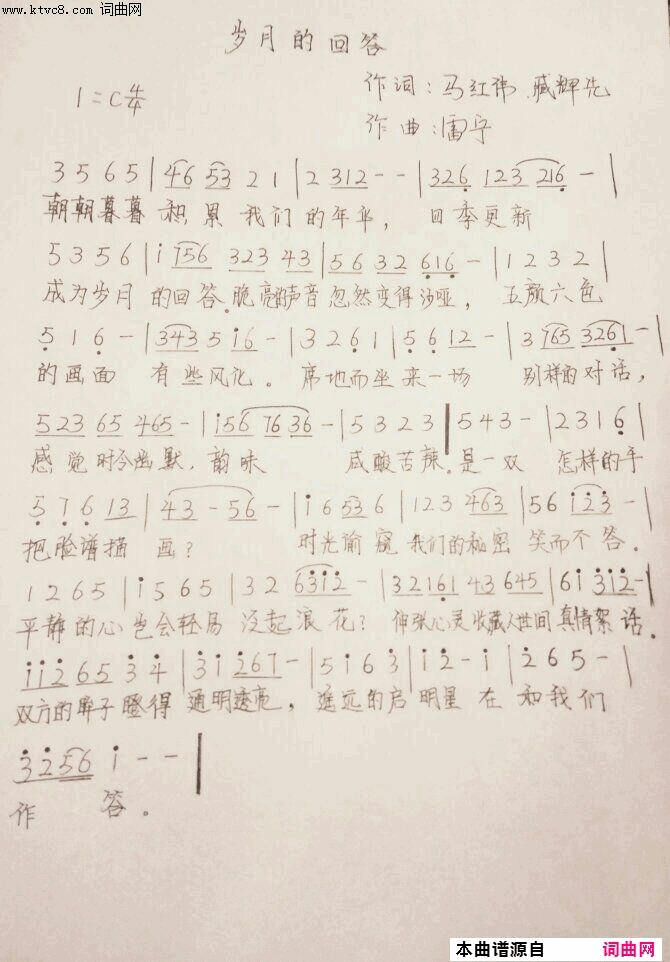 www.ktvc8.com 词曲网
岁月的回答
1=C 4/4
作词：马红伟 臧辉先
作曲：雷宇
3 5 6 5 | 46 53 2 1 | 2 312 - - | 326 123 216 - |
朝朝暮暮 积累 我们的年华， 四季更新
5 3 5 6 | i 156 323 43 | 56 32 616 - | 1 2 3 2 |
成为岁月 的回答。脆亮的声音 忽然变得沙哑， 五颜六色
5 1 6 - | 343 5 i6 - | 3 2 6 1 | 5 6 12 - | 3 765 3261 - |
的画面 有些风化。席地而坐 来一场 别样的对话，
523 65 465 - | i56 76 36 - | 5 3 2 3 | 5 4 3 - | 2 3 1 6 |
感觉时令幽默，韵味 咸酸苦辣。是一双 怎样的手
5 7 6 13 | 43 - 56 - | i 6 53 6 | 1 2 3 463 | 56 i23 - |
把脸谱描 画？ 时光偷窥 我们的秘密 笑而不答。
1 2 6 5 | i 5 6 5 | 3 2 63i2 - | 32161 43 645 | 6i 3i2 - |
平静的心 岂会轻易 泛起浪花？ 伸张心灵 收藏人世间 真情絮话。
ii265 34 | 3i 267 - | 5 i 6 3 | i 2 - i | 2 6 5 - |
双方的屏子瞪得 通明透亮，遥远的启 明星 在 和我们
3256 i - - |
作 答。
本曲谱源自 词曲网